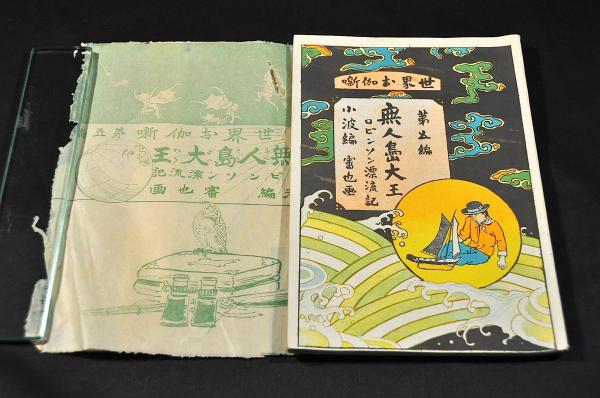 世界お伽噺
第五編
無人島大王
ロビンソン漂流記
小波編 審也画
世界お伽噺 第五
無人島大王
ビンソン漂流記
編 審也画